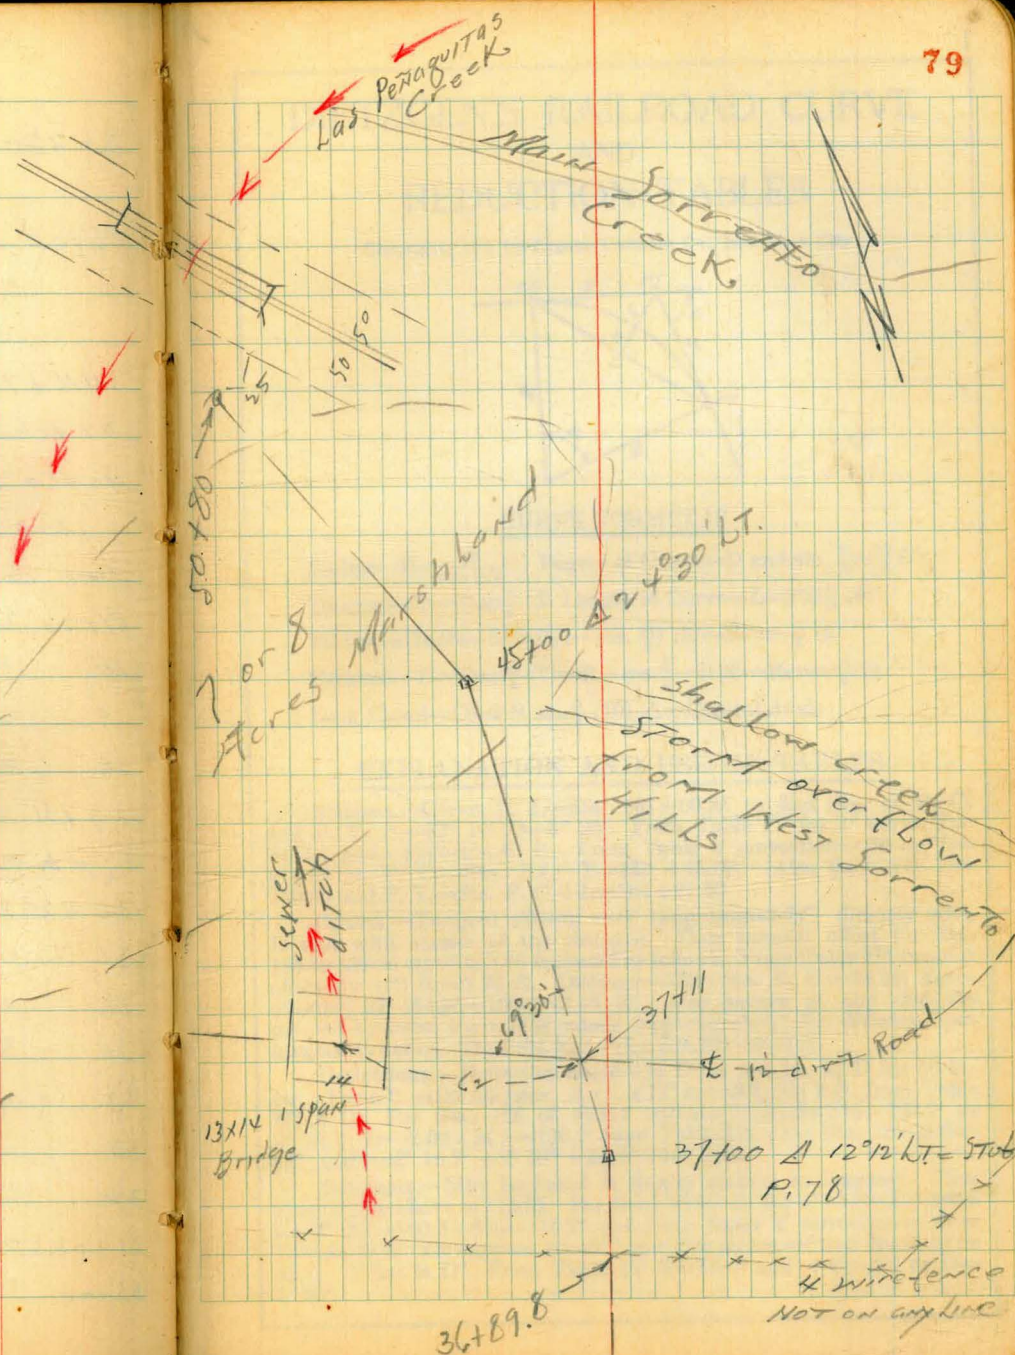 79
Las Peñaquitas
Creek
Main Sorrento
Creek
50 50
25
50+80
Marshland
7 or 8
Acres
45+00 Δ 24°30' LT.
shallow creek
STORM overflow
from West Sorrento
Hills
sewer
ditch
69°30'
37+11
62
℄ 12' dirt Road
14
13x14 1 span
Bridge
37+00 Δ 12°12' LT. = STub
P. 78
4 wire fence
NOT ON any Line
36+89.8